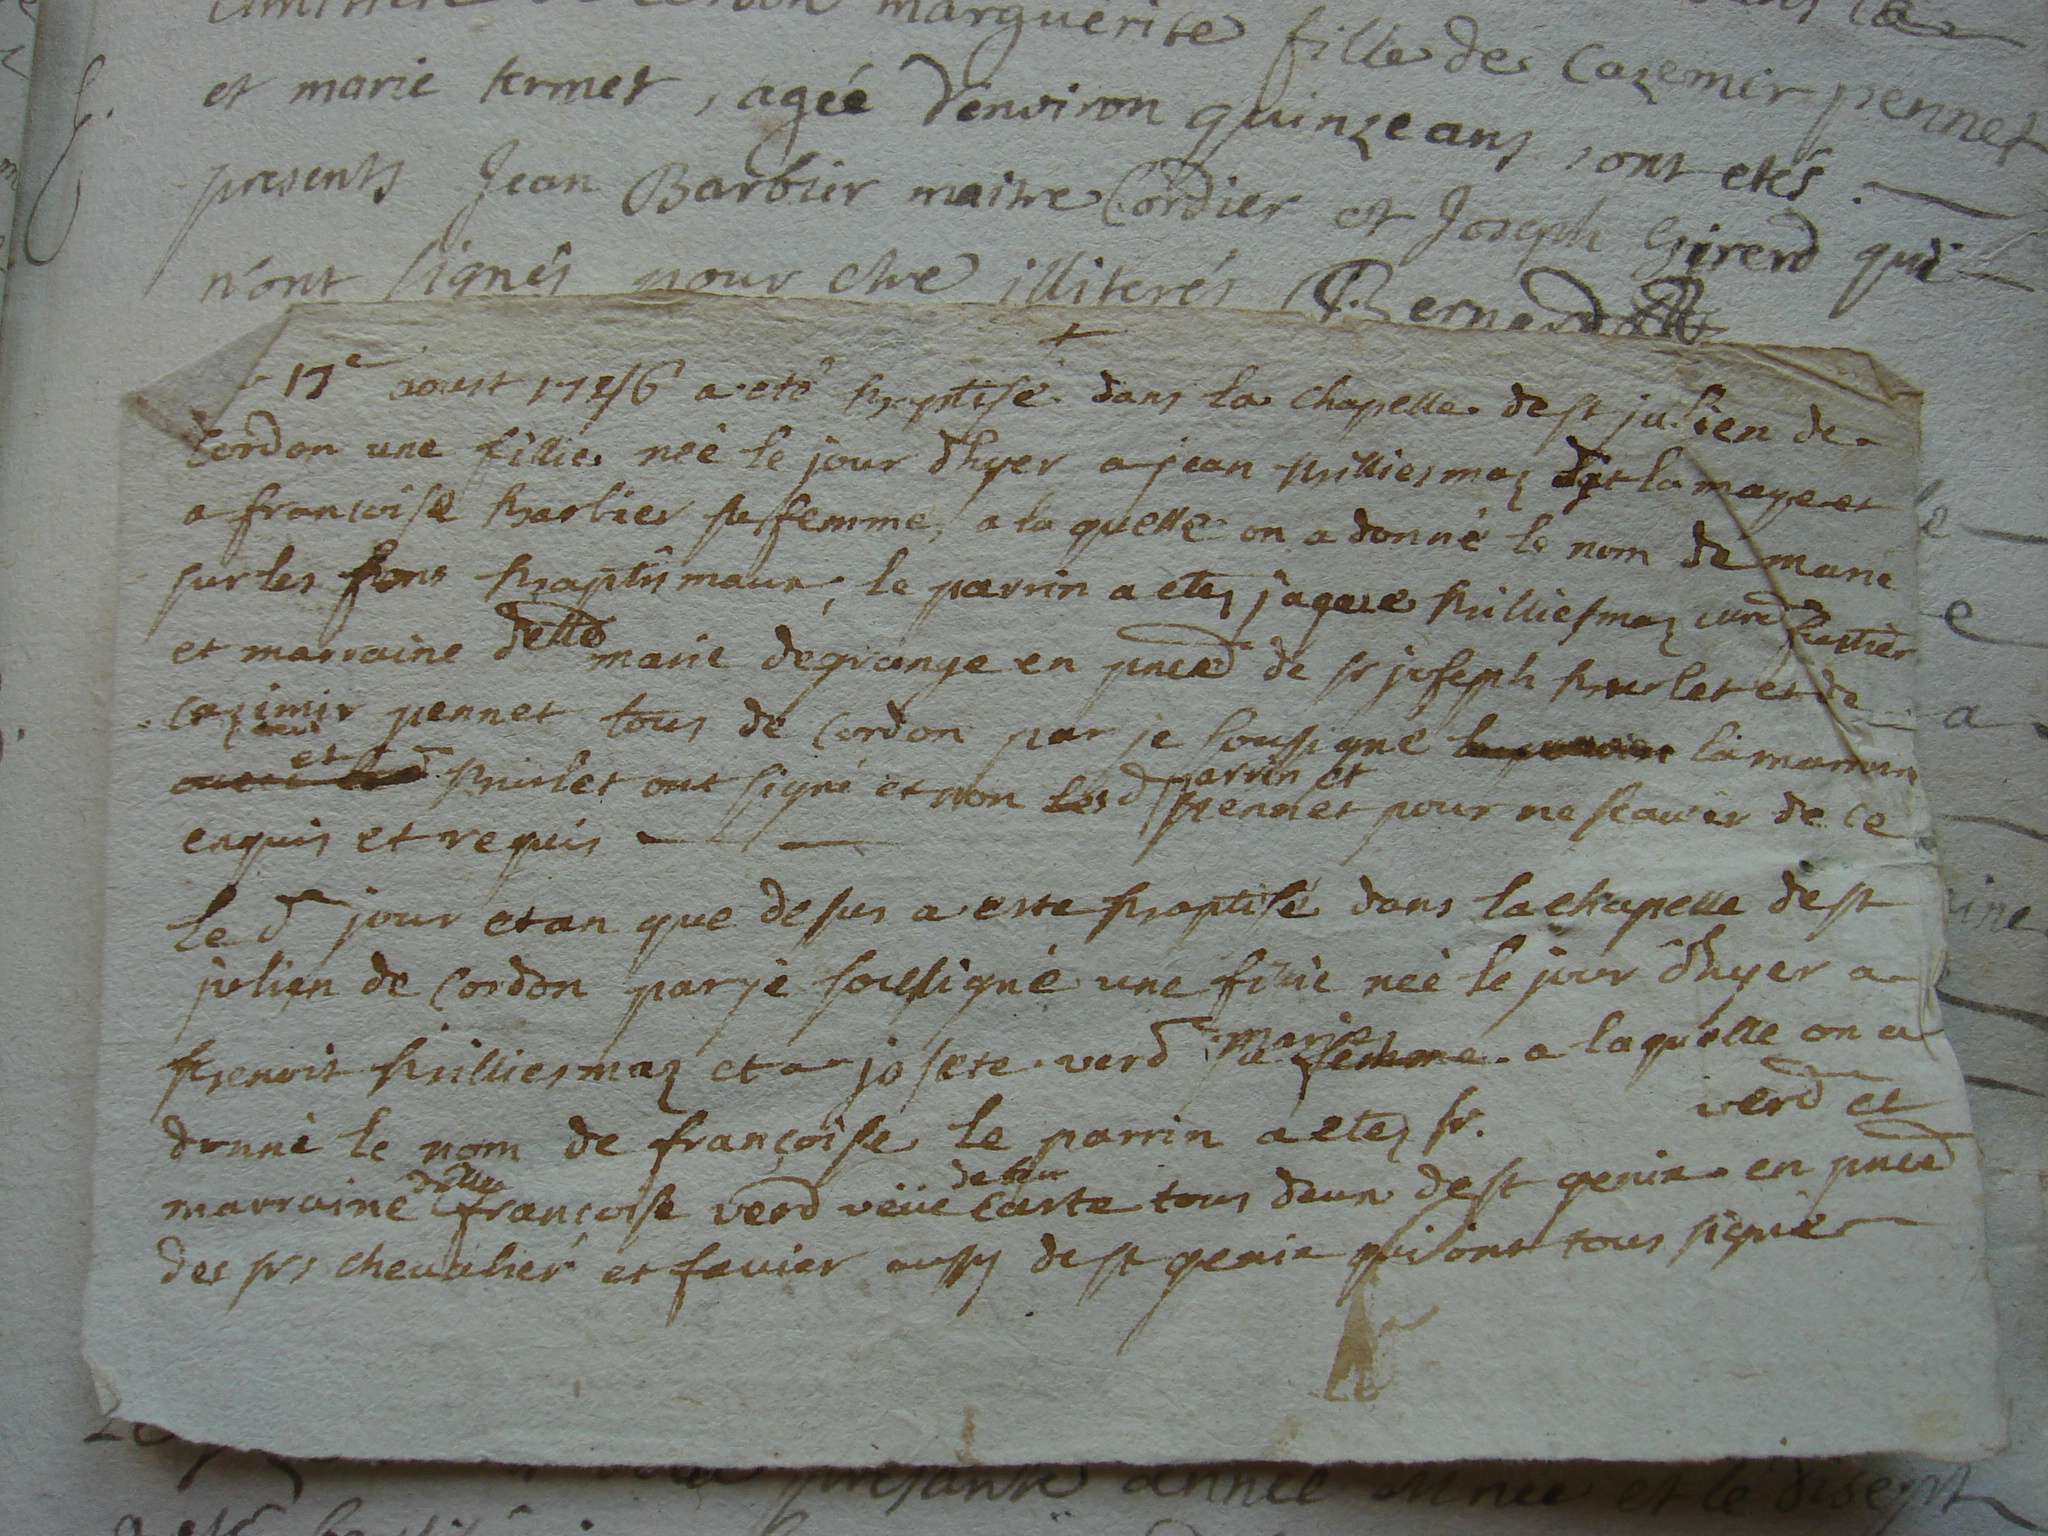 marguerite fille de Cazemir pennet
et marie termet, agée d'environ quinze ans, ont etés
presents Jean Barbier maitre Cordier et Joseph Girerd qui
n'ont signés pour etre illiterés Bernard
+
17e aoust 1746 a eté baptisé dans la chapelle de st julien de
Cordon une fillie neè le jour d'hyer a jean billiesmaz dt la maye et
a francoise barbier sa femme, a la quelle on a donné le nom de marie
sur les fons baptismaux, le parrin a etez jaque billiesmaz
et marraine delle marie degrange en pnce de sr joseph burlet et de
cazimir pennet tous de Cordon par je soussigné la marrine
et burlet ont signé et non led parrin et pennet pour ne scavoir de ce
enquis et requis
le d jour et an que desus a este baptisé dans la chapelle de st
julien de Cordon par je soussigné une fillie neè le jour d'hyer a
benoit billiesmaz et a josete verd maries a laquelle on a
donné le nom de françoise le parrin a etez sr. verd et
marraine delle françoise verd veüe de feu carte tous deux de st genix en pnce
des srs chevalier et favier aussy de st genix qui ont tous signé
presante année